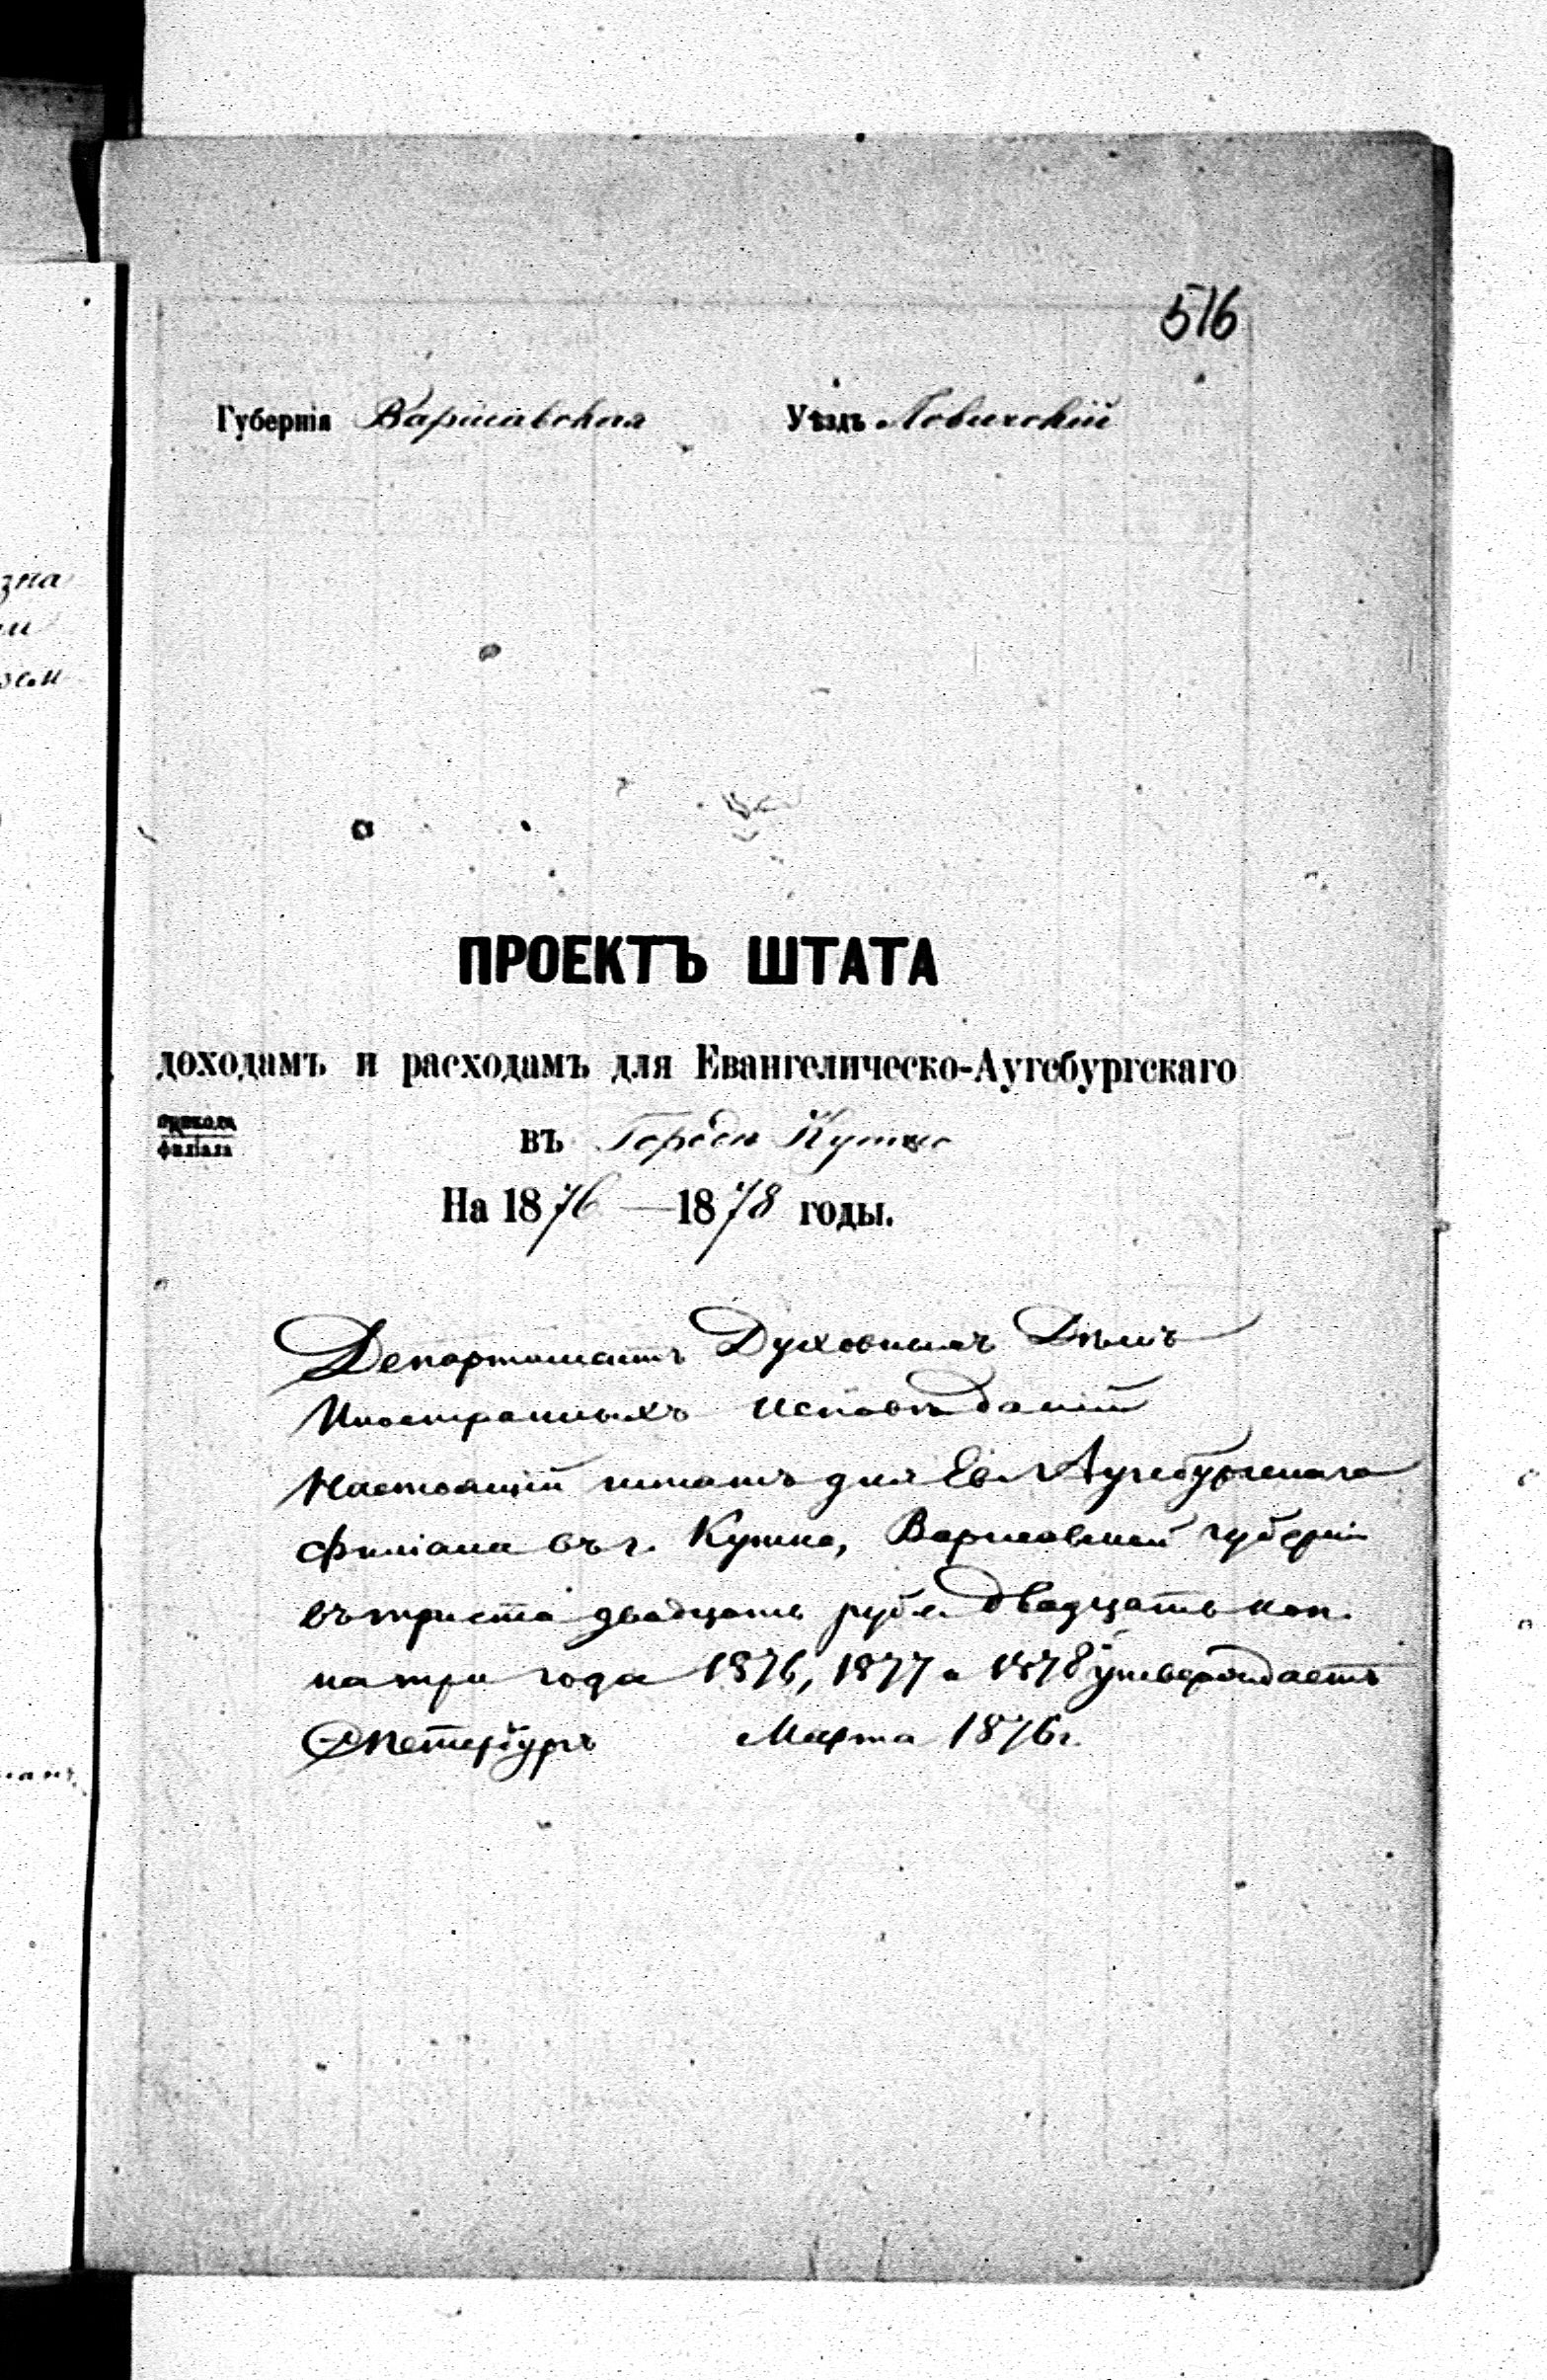 516
Губернія Варшавская Уѣздъ Ловичскій
ПРОЕКТЪ ШТАТА
доходамъ и расходамъ для Евангелическо-Аугсбургскаго
прихода
филіала
въ Городѣ Кутно
На 1876 — 1878 годы.
Департаментъ Духовныхъ Дѣлъ
Иностранныхъ Исповѣданій
Настоящій штатъ для Ев. Аугсбургскаго
филіала въ г. Кутно, Варшавской губерніи
въ триста двадцать рубл. двадцать коп.
на три года 1876, 1877 и 1878 утверждаетъ
Петербургъ Марта 1876 г.
зна